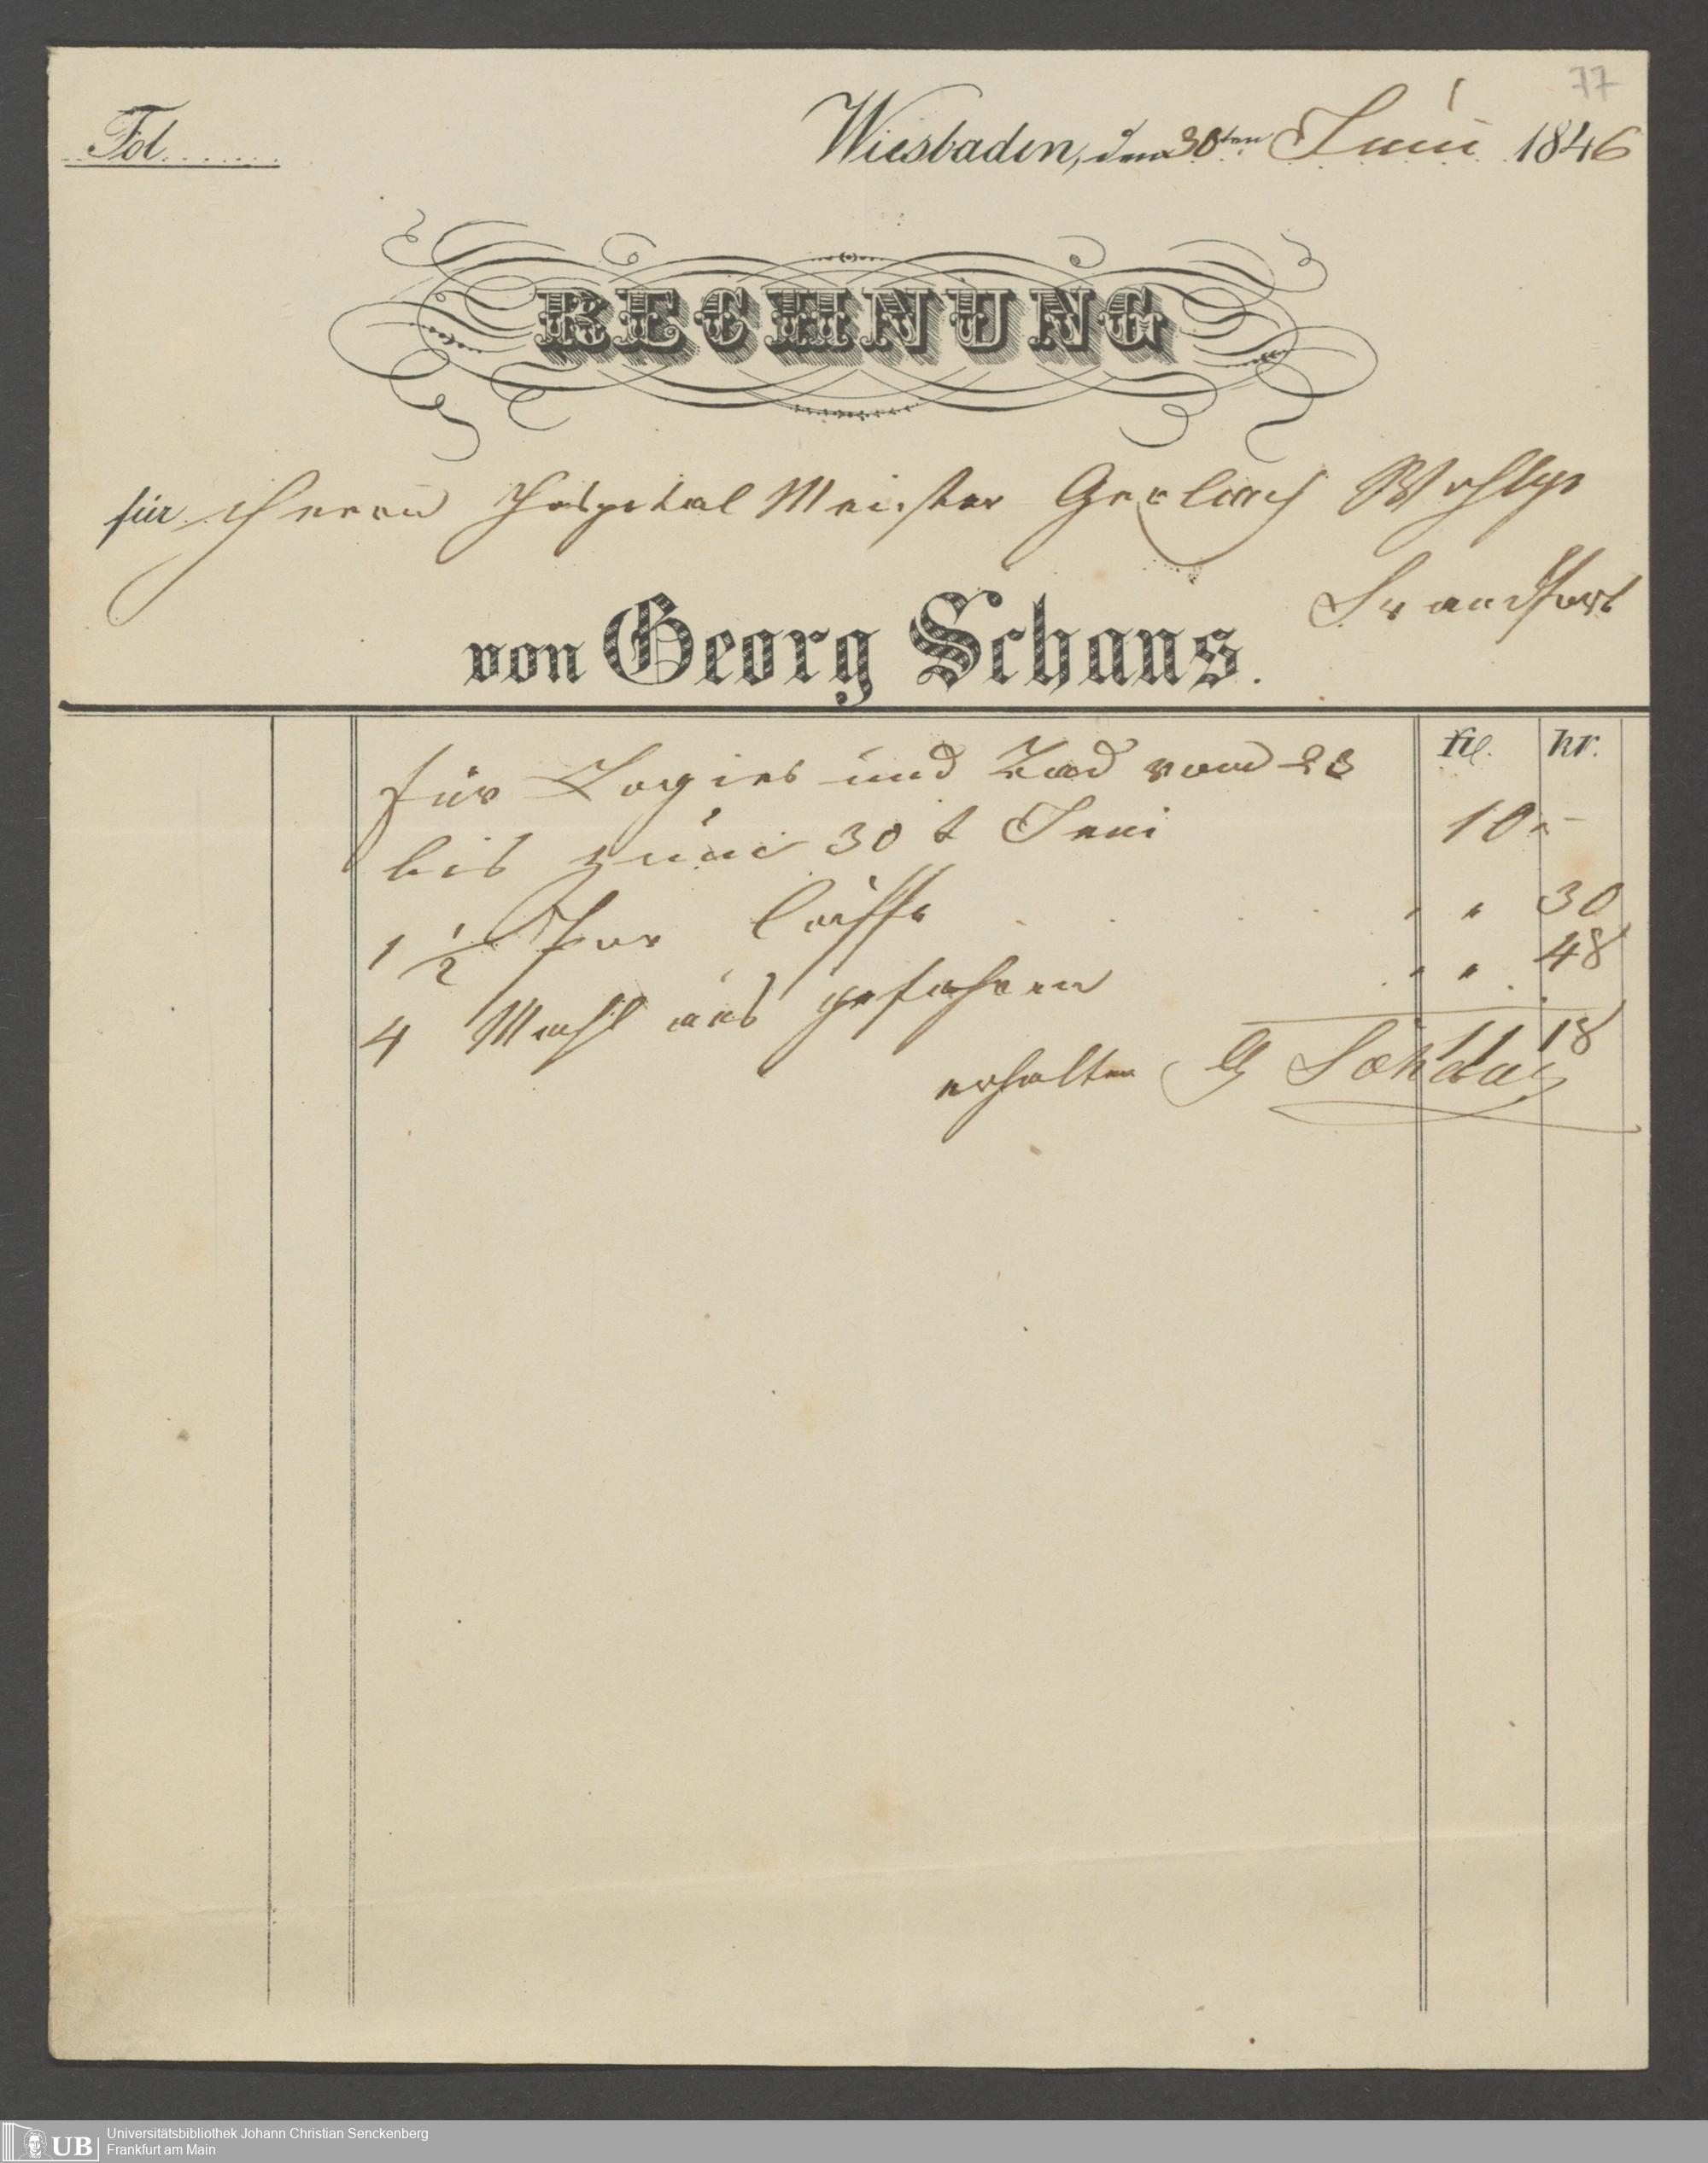 77
Fol.
Wiesbaden, den 30ten Juni 1846
RECHNUNG
für Herrn Hospital Meister Gerlach
Frankfort
von Georg Schaus.
fl. kr.
für Logies und Bad vom 23
bis zum 30 t Juni 10 -
1 1/2 " " 30
4 Mahl aus gefahren " " 48
11 18
erhalten G Schaus
UB
Universitätsbibliothek Johann Christian Senckenberg
Frankfurt am Main